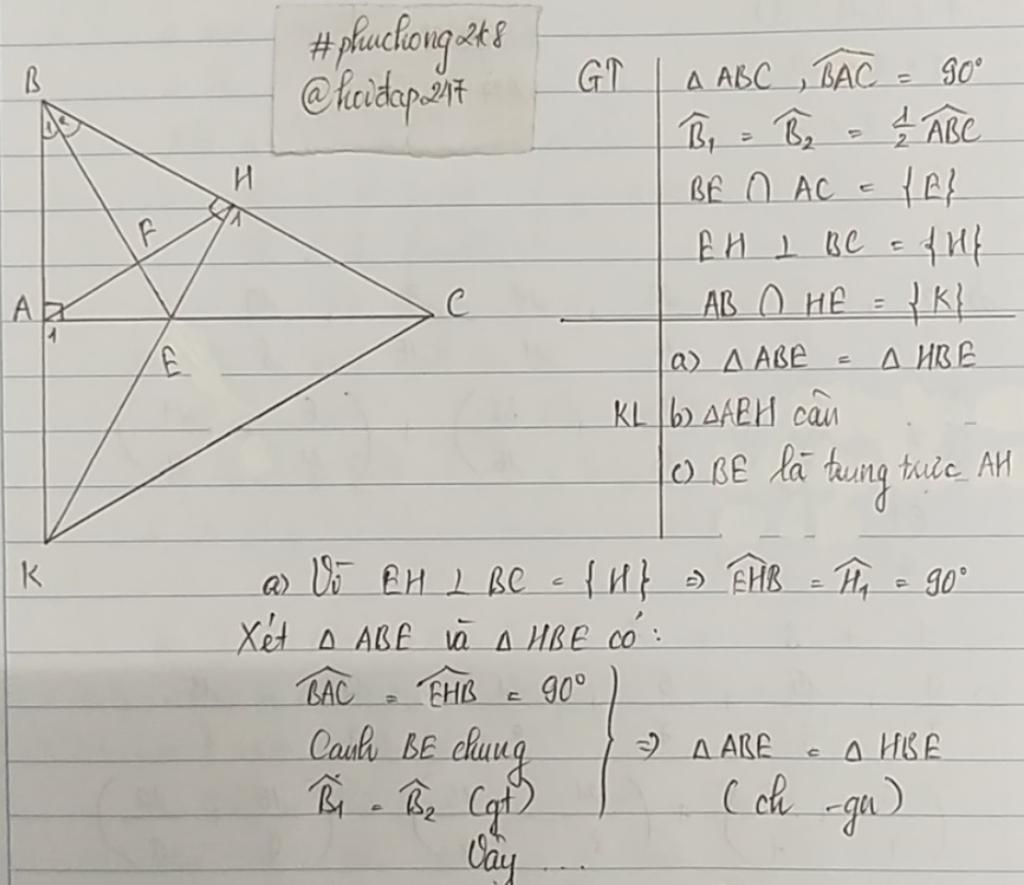 #phuchong2k8
@hoidap247
B
1 2
H
1
F
A
1
C
E
K
GT
Δ ABC , \widehat{BAC} = 90°
\widehat{B}₁ = \widehat{B}₂ = ½ \widehat{ABC}
BE ∩ AC = {E}
EH ⊥ BC = {H}
AB ∩ HE = {K}
KL
a) Δ ABE = Δ HBE
b) ΔAEH cân
c) BE là trung trực AH
a) Vì EH ⊥ BC = {H} ⇒ \widehat{EHB} = \widehat{H}₁ = 90°
Xét Δ ABE và Δ HBE có :
\widehat{BAC} = \widehat{EHB} = 90°
Cạnh BE chung
\widehat{B}₁ = \widehat{B}₂ (gt)
⇒ Δ ABE = Δ HBE
(ch - gn)
Vậy ...